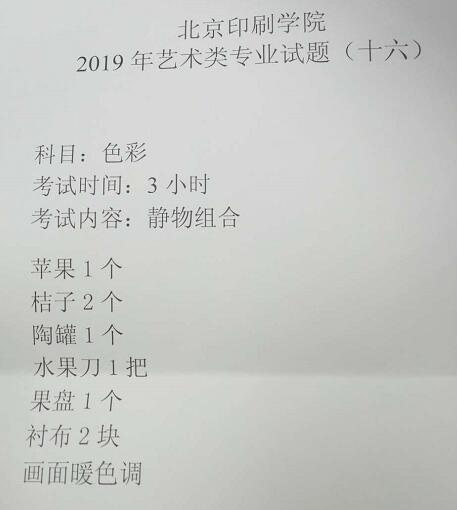 北京印刷学院
2019 年艺术类专业试题（十六）
科目：色彩
考试时间：3 小时
考试内容：静物组合
苹果 1 个
桔子 2 个
陶罐 1 个
水果刀 1 把
果盘 1 个
衬布 2 块
画面暖色调